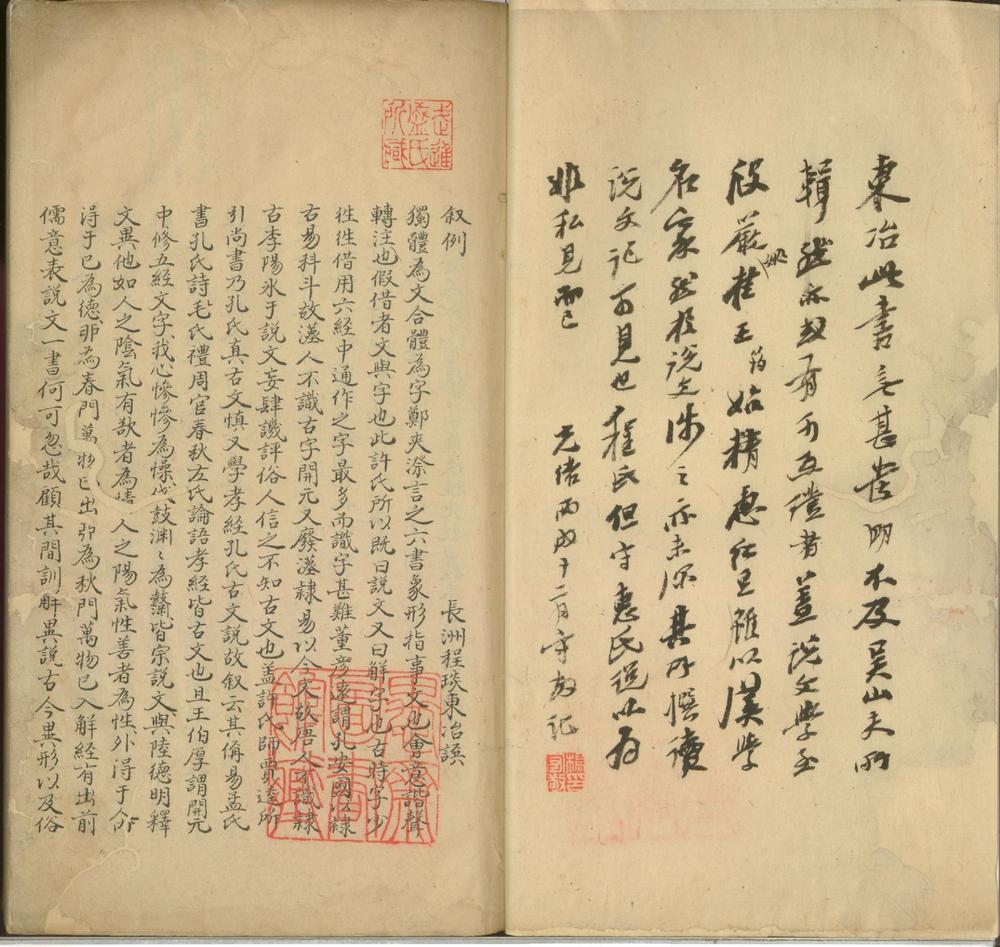 東冶此書言甚豈明不及吳山夫所
輯然亦頗有可互證者蓋說文學至
段嚴桂姚王筠始精惠紅豆雖以漢學
名家然於說文涉之亦未深其所撰讀
說文記可見也程氏但守惠氏說以為
非私見而已
光緒丙戌十二月守敬記
叙例
長洲程琰東冶譔
獨體為文合體為字鄭夾漈言之六書象形指事文也會意諧聲
轉注也假借者文與字也此許氏所以既曰說文又曰解字也古時字少
徃徃借用六経中通作之字最多而識字甚難董彦遠謂孔安國以隸
古易科斗故漢人不識古字開元又廢漢隸易以今文故唐人不識隸
古李陽氷于說文妄肆譏評俗人信之不知古文也盖許氏師賈逵所
引尚書乃孔氏真古文慎又學孝経孔氏古文說故叙云其偁易孟氏
書孔氏詩毛氏禮周官春秋左氏論語孝經皆古文也且王伯厚謂開元
中修五經文字我心慘慘為懆伐鼓渊〻為鼘皆宗説文與陸德明釋
文異他如人之陰氣有欲者為情人之陽氣性善者為性外得于人内
得于已為德丣為春門萬物已出丣為秋門萬物已入解経有出前
儒意表説文一書何可忽哉顧其間訓解異說古今異形以及俗